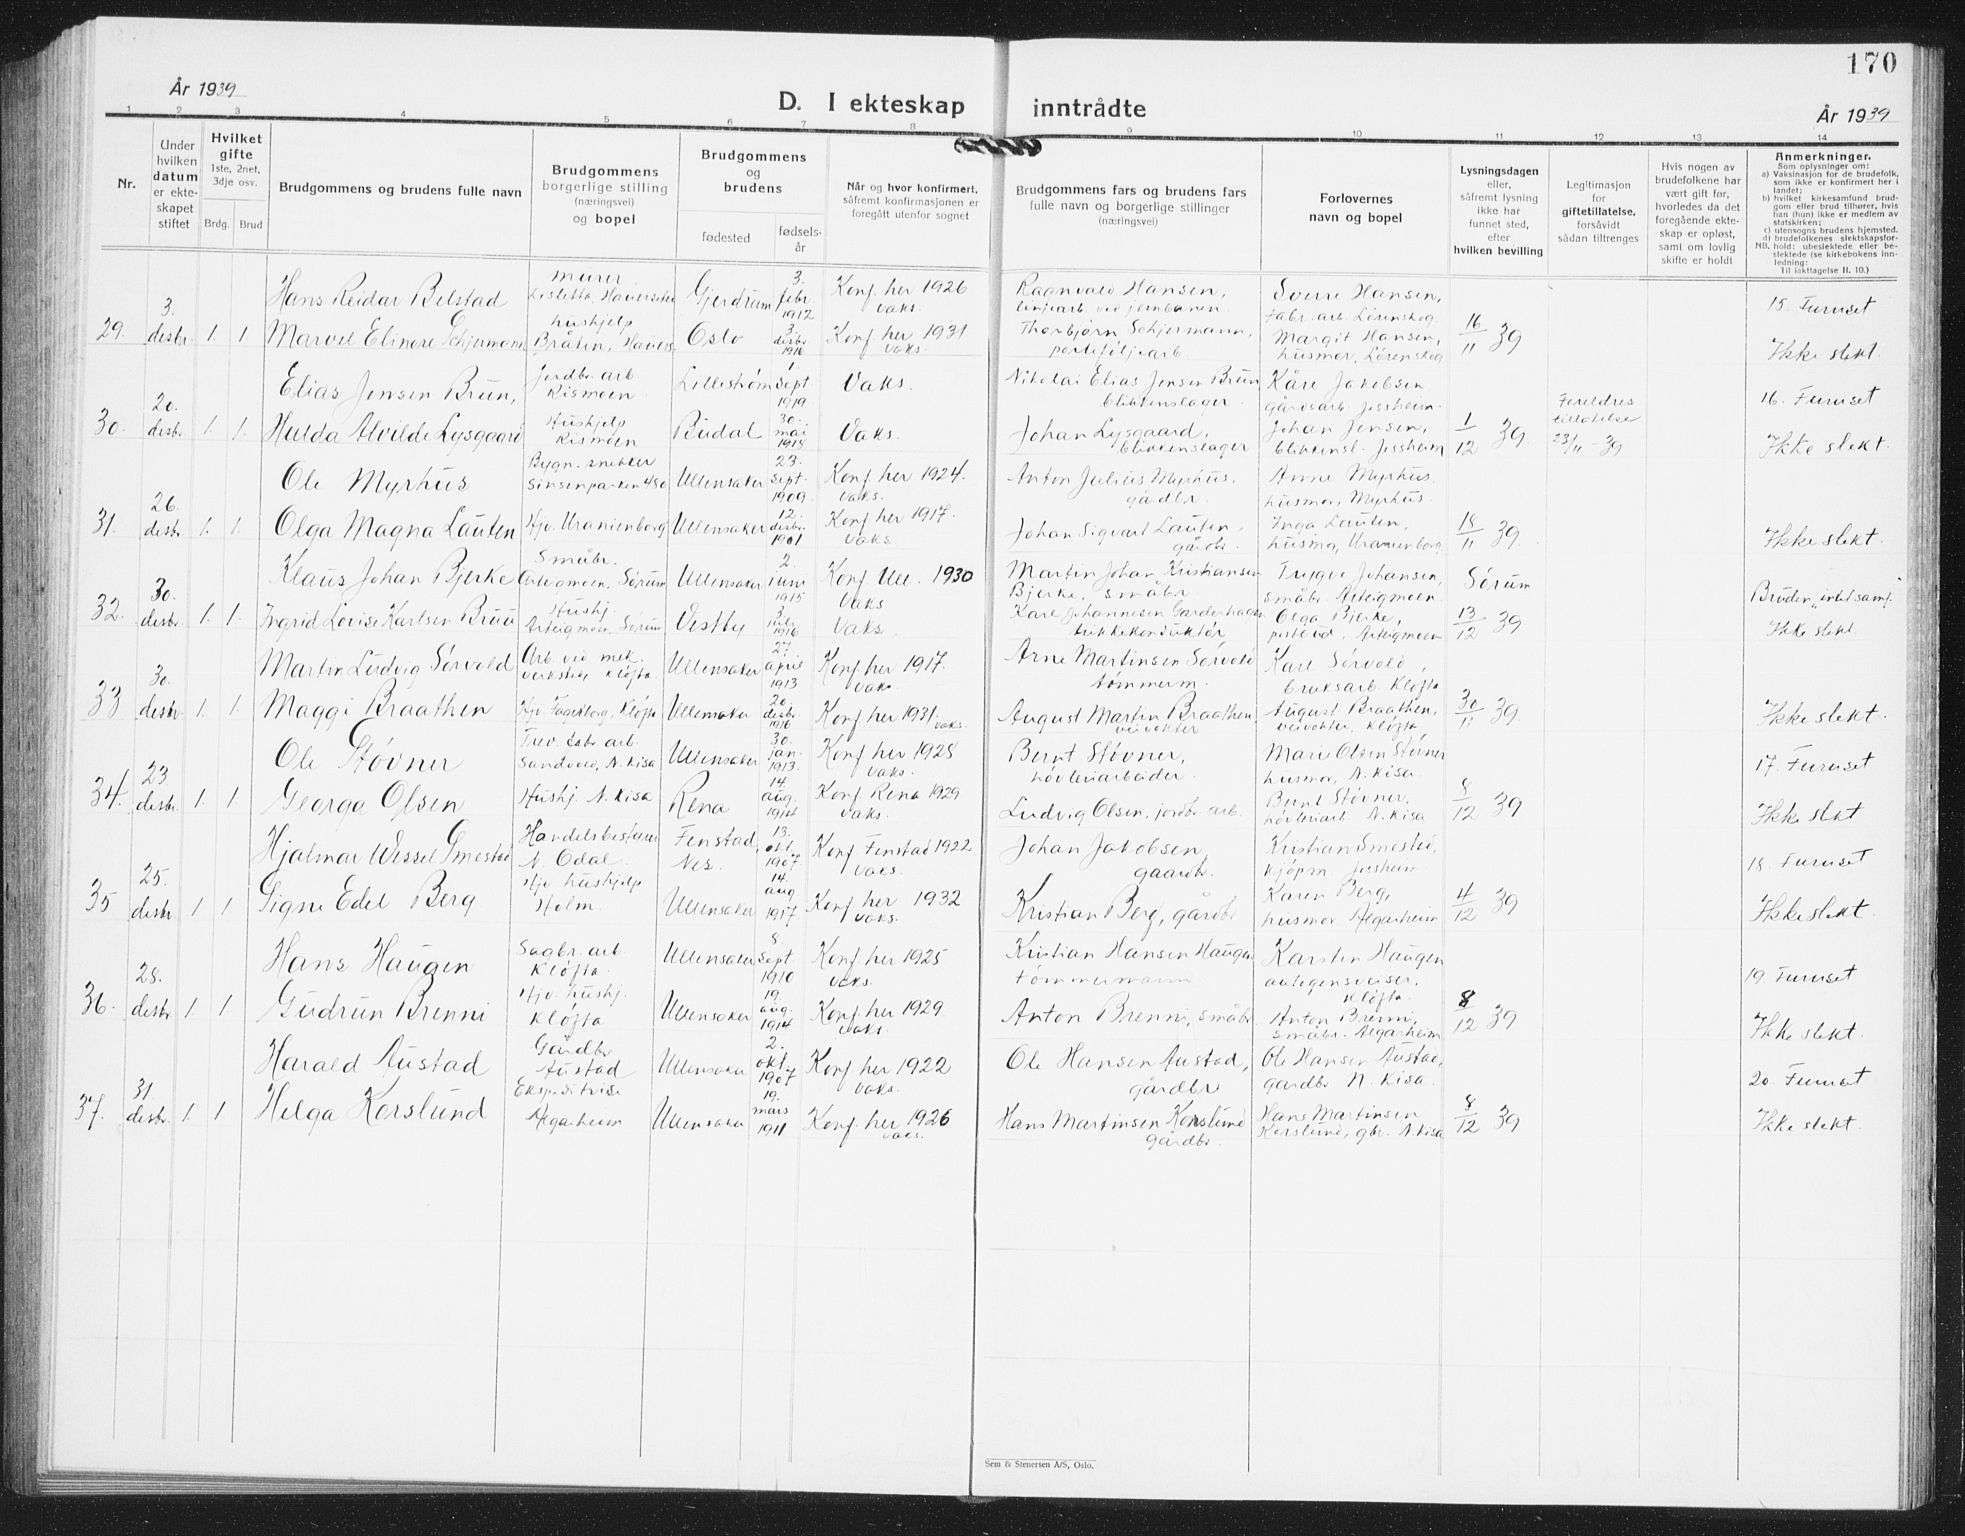 170
År 1939
D. I ekteskap inntrådte
År 1939
1 2 3 4 5 6 7 8 9 10 11 12 13 14
Nr.
Under hvilken datum er ekteskapet stiftet
Hvilket gifte
1ste, 2net, 3dje osv.
Brdg. Brud
Brudgommens og brudens fulle navn
Brudgommens borgerlige stilling (næringsvei) og bopel
Brudgommens og brudens
fødested
fødselsår
Når og hvor konfirmert, såfremt konfirmasjonen er foregått utenfor sognet
Brudgommens fars og brudens fars fulle navn og borgerlige stillinger (næringsvei)
Forlovernes navn og bopel
Lysningsdagen eller, såfremt lysning ikke har funnet sted, efter hvilken bevilling
Legitimasjon for giftetillatelse, forsåvidt sådan tiltrenges
Hvis nogen av brudefolkene har vært gift før, hvorledes da det foregående ekteskap er opløst, samt om lovlig skifte er holdt
Anmerkninger.
Som oplysninger om:
a) Vaksinasjon for de brudefolk, som ikke er konfirmert her i landet;
b) hvilket kirkesamfund brudgom eller brud tilhører, hvis han (hun) ikke er medlem av statskirken;
c) utensogns brudens hjemsted.
d) brudefolkenes slektskapsforhold: ubeslektede eller beslektede (se kirkebokens innledning:
NB. Til iakttagelse II. 10.)
29. 3. desbr. 1. 1
Hans Reidar Belstad murer Gjerdrum 3. febr. 1912 Konf. her 1926 vaks. Ragnvald Hansen, linjearb. ved jernbanen. Sverre Hansen, fabr. arb. Lørenskog. 15. Furuset
Marvel Elinore Schjermann hushjelp Bråten, Oslo 3. desbr. 1916 Konf. her 1931 vaks. Thorbjørn Schjermann, porteføljearb. Margit Hansen, husmor, Lørenskog 16/11 39 Ikke slekt.
30. 20. desbr. 1. 1.
Elias Jensen Brun, jordbr. arb. Kismoen Lillestrøm 1. sept. 1919 Vaks. Nikolai Elias Jensen Brun blikkenslager. Kåre Jakobsen gårdsarb. Jessheim. 16. Furuset
Hulda Alvilde Lysgaard Hushjelp Kismoen Budal 30. mai 1918 Vaks. Johan Lysgaard, blikkenslager Johan Jensen, blikkensl. Jessheim 1/12 39. Foreldres tillatelse 23/11 - 39 Ikke slekt.
31. 26. desbr. 1. 1.
Ole Myrhus Bygn. snekker Sinsenparken 480 Ullensaker 23. sept. 1909. Konf. her 1924. vaks. Anton Julius Myrhus. gårdbr. Anne Myrhus. husmor, Myrhus.
Olga Magna Lauten Hjv. Uranienborg Ullensaker 12. desbr. 1901 Konf. her 1917. vaks Johan Sigvart Lauten, gårdbr. Inga Lauten, husmor, Uranienborg. 18/11 39. Ikke slekt.
32. 30. desbr. 1. 1.
Klaus Johan Bjerke Småbr. Arteigmoen, Sørum Ullensaker 2. juni 1915 Konf. Ull. 1930 Vaks Martin Johan Kristiansen Bjerke, småbr. Trygve Johansen, småbr. Arteigmoen Sørum
Ingrid Lovise Karlsen Bruu Hushj. Arteigmoen, Sørum Vestby 3. 1916 Vaks. Karl Johannesen Garderhagen trikkekonduktør Olga Bjerke, Arteigmoen 13/12 39 Ikke slekt
33 30. desbr. 1. 1.
Martin Ludvig Sørvold Arb. ved mek. verksted, Kløfta. Ullensaker 27. april 1913 Konf. her 1917. vaks. Arne Martinsen Sørvold tømmerm. Karl Sørvold, bruksarb. Kløfta
Maggi Braathen Hjv. Fagerborg, Kløfta Ullensaker 20. desbr. 1916 Konf. her 1931. vaks. August Martin Braathen veivokter August Braathen, veivokter, Kløfta 30/11 39 Ikke slekt.
34. 23 desbr. 1. 1.
Ole Støvner Trev. fabr. arb. Sandvold, N. Kisa Ullensaker 30. jan. 1913. Konf. her 1928 vaks. Bernt Støvner, høvleriarbeider. Marie Olsen Støvner husmor, N. Kisa. 17. Furuset
Georga Olsen Hushj. N. Kisa Rena 14. aug. 1914 Konf. Rena 1929 vaks. Ludvig Olsen, jordbr. arb. Bernt Støvner, høvleriarb. N. Kisa 8/12 39 Ikke slekt
35 25. desbr. 1 1
Hjalmar Wessel Smestad Handelsbestyrer N. Odal. Fenstad, Nes. 13. okt. 1907. Konf. Fenstad 1922 vaks. Johan Jakobsen, gaardbr. Kristian Smestad, kjøpm. Jessheim. 18. Furuset
Signe Edel Berg Hjv. hushjelp Holm. Ullensaker 14. aug. 1917 Konf. her 1932 vaks. Kristian Berg, gårdbr Karen Berg, husmor Algarheim 4/12 39 Ikke slekt.
36. 28. desbr. 1. 1
Hans Haugen Sagbr. arb. Kløfta. Ullensaker 8. sept. 1910 Konf. her 1925 vaks. Kristian Hansen Haugen tømmermann Karsten Haugen autogensveiser, Kløfta. 19. Furuset
Gudrun Brenni Hjv. hushj. Kløfta Ullensaker 19. aug. 1914 Konf. her 1929 vaks. Anton Brenni, småbr Anton Brenni, småbr. Algarheim 8/12 39 Ikke slekt.
37. 31. desbr. 1. 1
Harald Austad Gårdbr Austad Ullensaker 2. okt. 1907 Konf. her 1922 vaks. Ole Hansen Austad, gårdbr Ole Hansen Austad, gardbr. N. Kisa. 20. Furuset
Helga Korslund Ekspeditrise Algarheim Ullensaker 19. mars 1911 Konf. her 1926 vaks. Hans Martinsen Korslund gårdbr. Hans Martinsen Korslund, gbr. N. Kisa 8/12 39 Ikke slekt.
Sem & Stenersen A/S, Oslo.